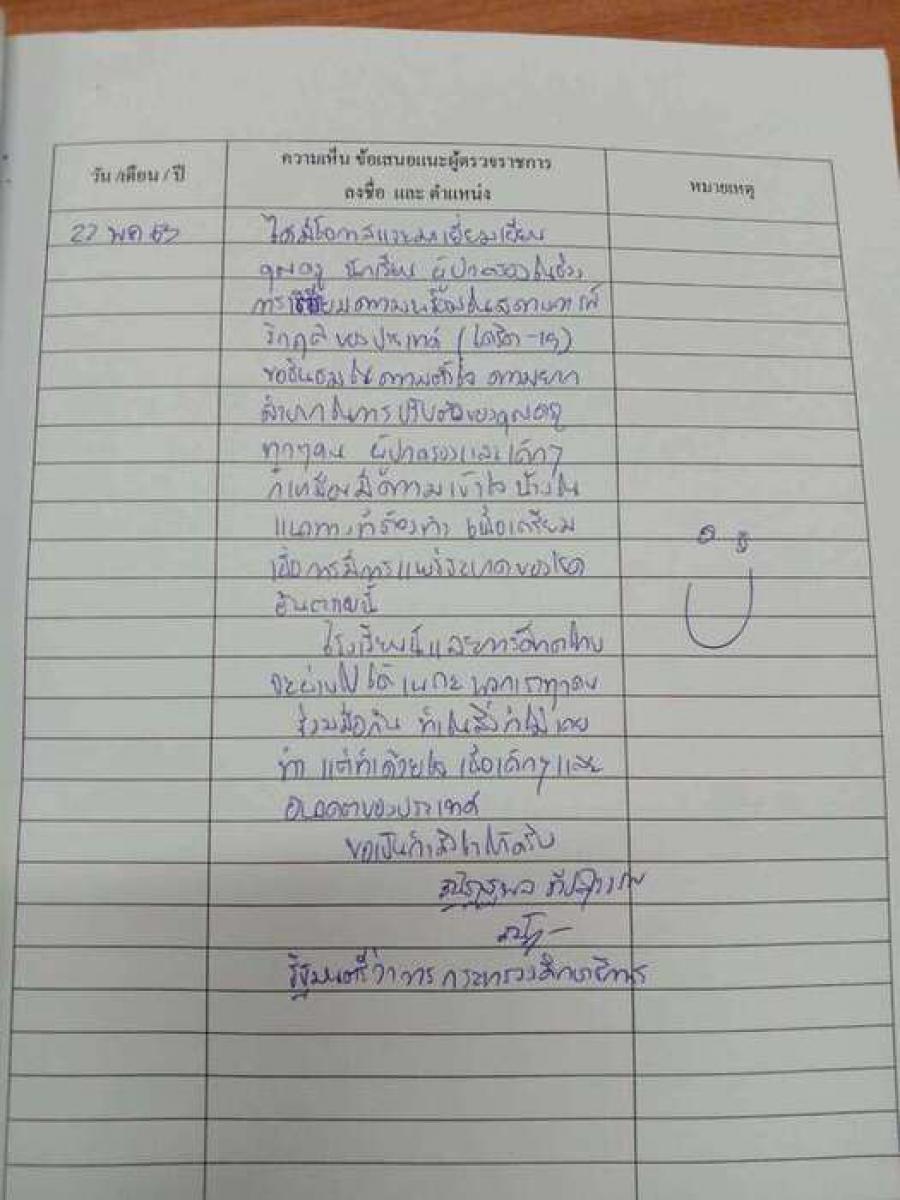 วัน /เดือน / ปี
ความเห็น ข้อเสนอแนะผู้ตรวจราชการ
ลงชื่อ และ ตำแหน่ง
หมายเหตุ
22 พค 63
ได้มีโอกาสแวะมาเยี่ยมเยียน
คุณครู นักเรียน ผู้ปกครองในช่วง
การเตรียมความพร้อมในสถานการณ์
วิกฤติของประเทศ (โควิด-19)
ขอชื่นชมในความตั้งใจ ความยาก
ลำบากในการปรับตัวของคุณครู
ทุกๆคน ผู้ปกครองและเด็กๆ
ก็เหมือนมีความเข้าใจบ้างใน
แนวทางที่ต้องทำ เพื่อเตรียม
เมื่อการมีการแพร่ระบาดของโรค
อันตรายนี้
โรงเรียนนี้และการศึกษาไทย
จะผ่านไปได้เพราะพวกเราทุกคน
ร่วมมือกัน ทำในสิ่งที่ไม่เคย
ทำ แต่ทำด้วยใจ เพื่อเด็กๆ และ
อนาคตของประเทศ
ขอเป็นกำลังใจให้ครับ
ณัฏฐพล ทีปสุวรรณ
รัฐมนตรีว่าการกระทรวงศึกษาธิการ